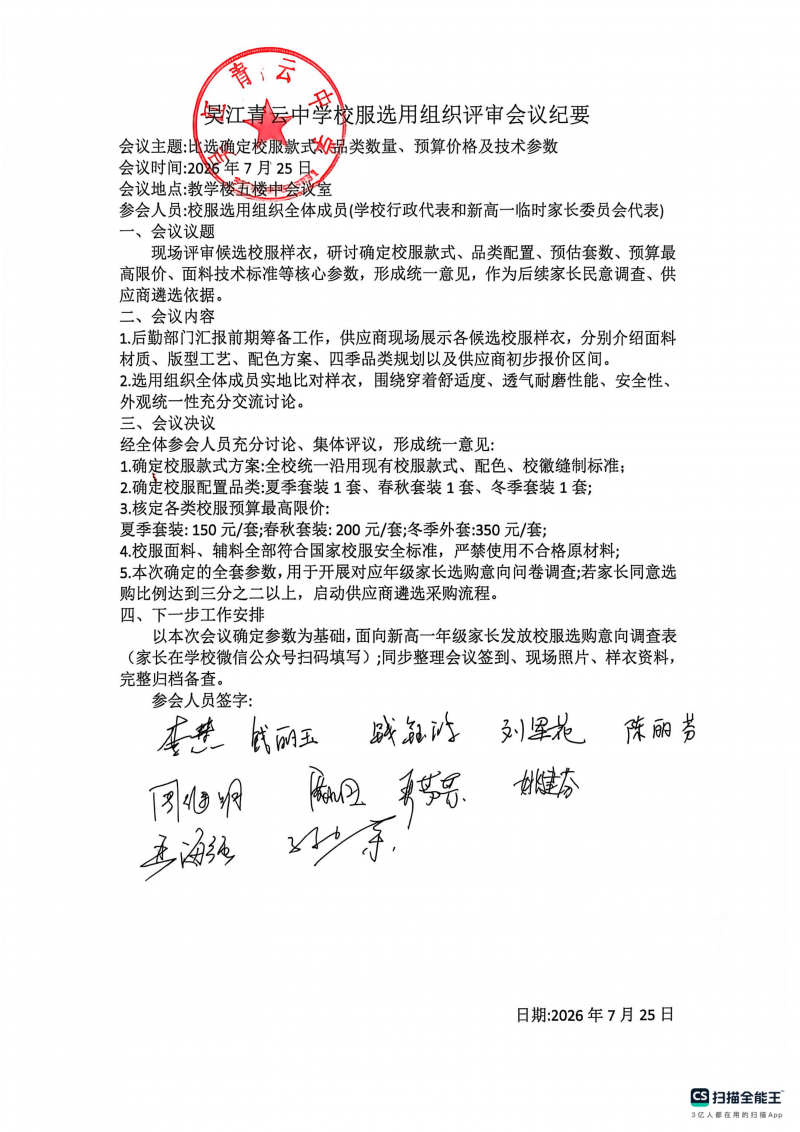 吴江青云中学校服选用组织评审会议纪要
会议主题:比选确定校服款式、品类数量、预算价格及技术参数
会议时间:2026 年 7 月 25 日
会议地点:教学楼五楼中会议室
参会人员:校服选用组织全体成员(学校行政代表和新高一临时家长委员会代表)
一、会议议题
现场评审候选校服样衣，研讨确定校服款式、品类配置、预估套数、预算最
高限价、面料技术标准等核心参数，形成统一意见，作为后续家长民意调查、供
应商遴选依据。
二、会议内容
1.后勤部门汇报前期筹备工作，供应商现场展示各候选校服样衣，分别介绍面料
材质、版型工艺、配色方案、四季品类规划以及供应商初步报价区间。
2.选用组织全体成员实地比对样衣，围绕穿着舒适度、透气耐磨性能、安全性、
外观统一性充分交流讨论。
三、会议决议
经全体参会人员充分讨论、集体评议，形成统一意见:
1.确定校服款式方案:全校统一沿用现有校服款式、配色、校徽缝制标准；
2.确定校服配置品类:夏季套装 1 套、春秋套装 1 套、冬季套装 1 套;
3.核定各类校服预算最高限价:
夏季套装: 150 元/套;春秋套装: 200 元/套;冬季外套:350 元/套;
4.校服面料、辅料全部符合国家校服安全标准，严禁使用不合格原材料;
5.本次确定的全套参数，用于开展对应年级家长选购意向问卷调查;若家长同意选
购比例达到三分之二以上，启动供应商遴选采购流程。
四、下一步工作安排
以本次会议确定参数为基础，面向新高一年级家长发放校服选购意向调查表
（家长在学校微信公众号扫码填写）;同步整理会议签到、现场照片、样衣资料，
完整归档备查。
参会人员签字:
李慧 钱丽玉 陈丽芬
姚健芬
日期:2026 年 7 月 25 日
CS 扫描全能王
3亿人都在用的扫描App